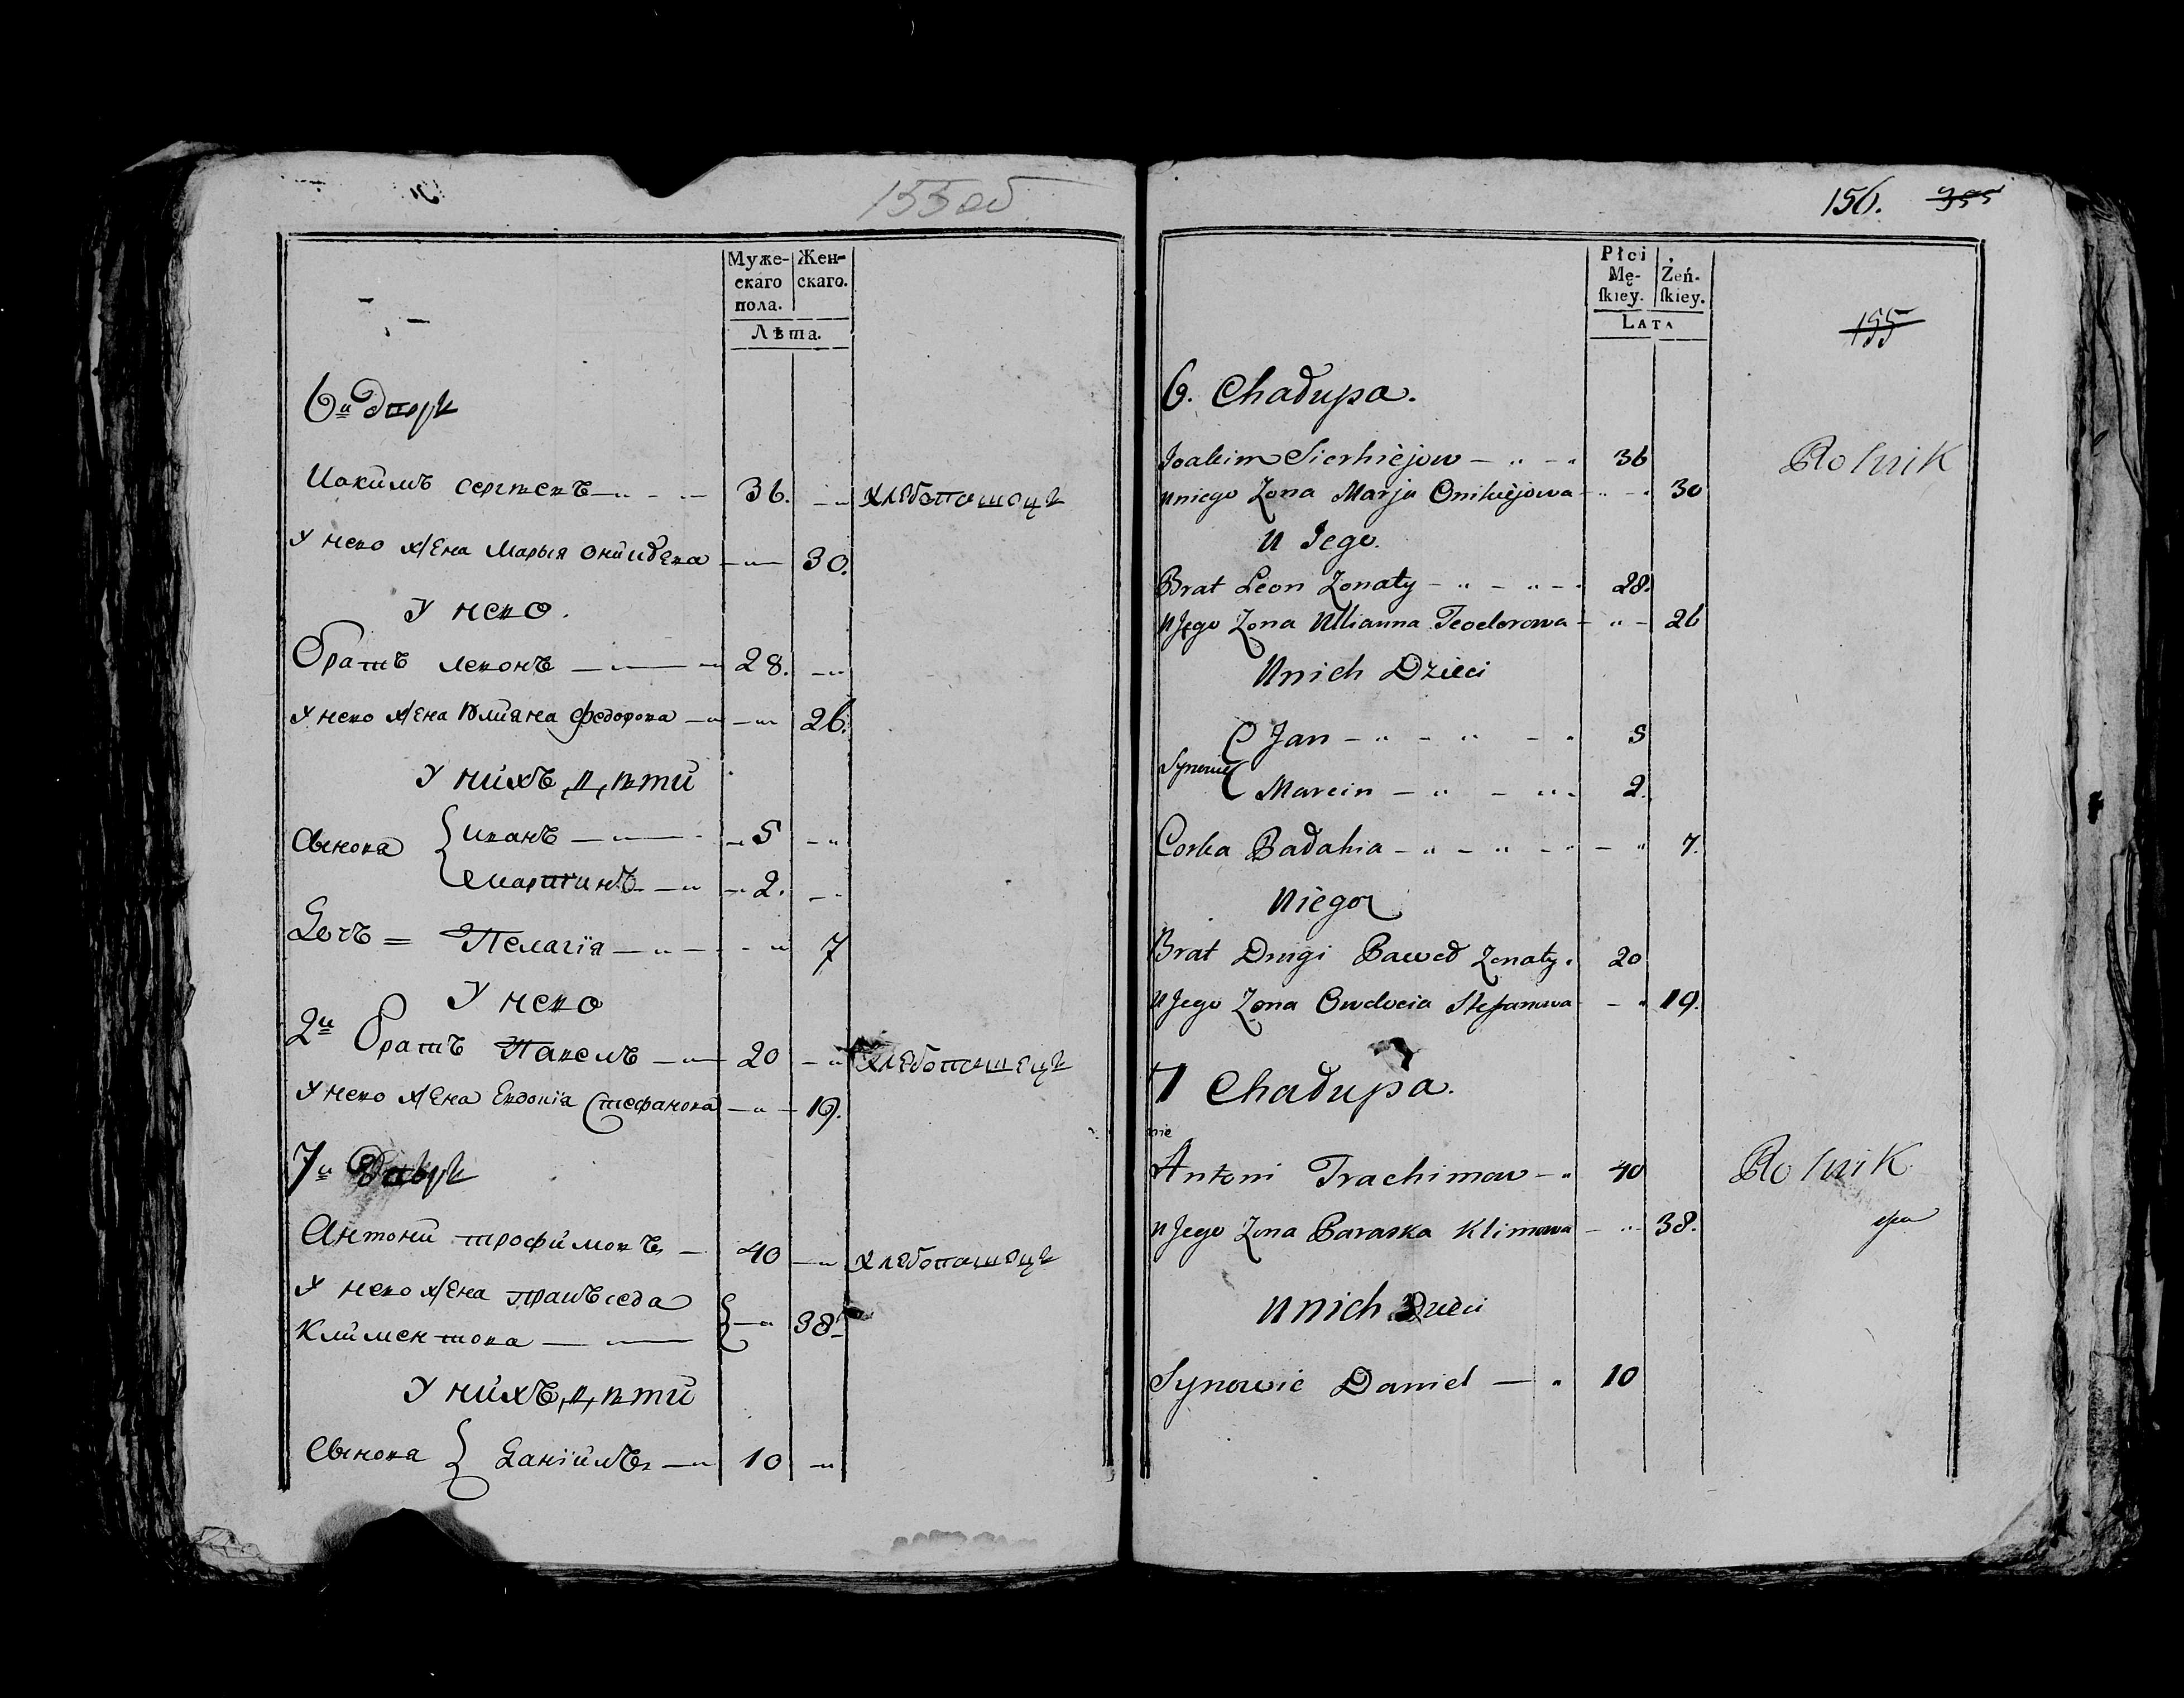 155 об
Муже-
скаго
пола.
Жен-
скаго.
Лѣта.
6й дворъ
Иокимъ Сергѣевъ 36. хлебопашецъ
У нево жена Марья 30.
У нево
Братъ Левонъ 28.
У нево жена Улияна Федорова 26.
У нихъ дѣти
Сынова Иванъ 5
Мартинъ 2.
Дочь = Пелагїя 7
У нево
2й Братъ Павелъ 20 хлебопашецъ
У нево жена Евдокїа Стефанова 19.
7й Дворъ
Антони Трофимовъ 40 хлебопашецъ
У нево жена
Климентова 38
У нихъ дѣти
Сынова Данїилъ 10
156. 355
Płci
Mę-
ſkiey.
Żeń-
ſkiey.
LATA
155
6. Chałupa.
Joakim Sierhiejow 36 Rolnik
U niego Zona Marja Onikiejowa 30
U Jego
Brat Leon Zonaty 28.
U Jego Zona Ullianna Teodorowa 26
U nich Dzieci
Jan 5
Synowie
Marcin 2.
Corka Badahia 7.
U niego
Brat Drugi Paweł Zonaty. 20
U Jego Zona Owdocia Stepanowa 19.
7 Chałupa.
Antoni Trachimow 40 Rolnik
U Jego Zona Paraska Klimowa 38.
U nich Dzieci
Synowie Daniel 10